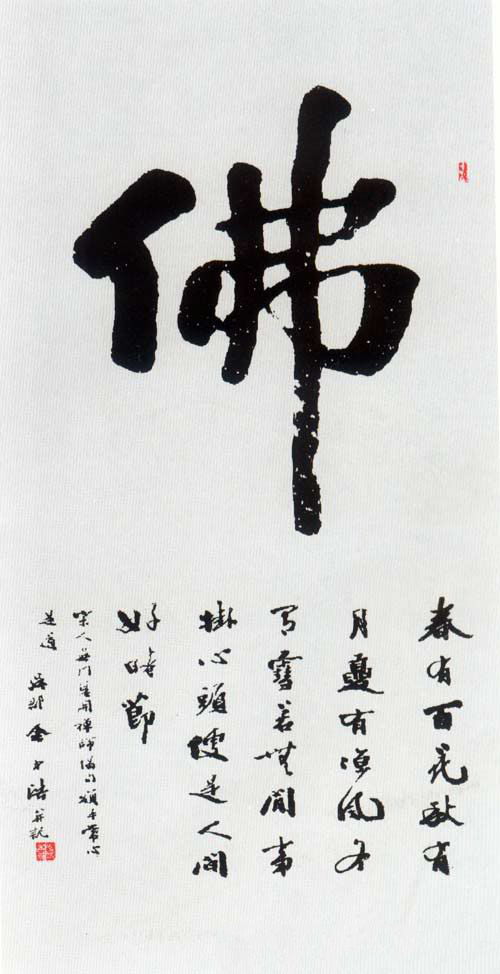 佛
春有百花秋有
月夏有凉風冬
有雪若無閒事
掛心頭便是人間
好時節
宋人無門慧開禪師偈句頌平常心
是道 金